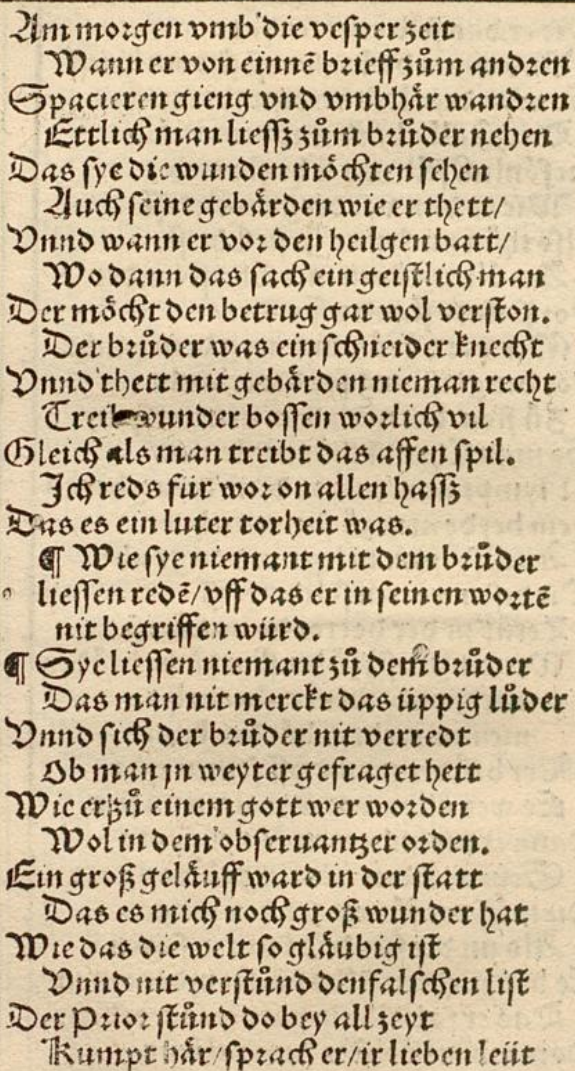 Am morgen vmb die vesper zeit
Wann er von einnē brieff zům andren
Spacieren gieng vnd vmbhär wandren
Ettlich man liessz zům brůder nehen
Das sye die wunden möchten sehen
Auch seine gebärden wie er thett/
Vnnd wann er vor den heilgen batt/
Wo dann das sach ein geistlich man
Der möcht den betrug gar wol verston.
Der brůder was ein schneider knecht
Vnnd thett mit gebärden nieman recht
wunder bossen worlich vil
Gleich als man treibt das affen spil.
Ich reds für wor on allen hassz
Das es ein luter torheit was.
¶ Wie sye niemant mit dem brůder
liessen redē/vff das er in seinen wortē
nit begriffen würd.
¶ Sye liessen niemant zů dem brůder
Das man nit merckt das üppig lůder
Vnnd sich der brůder nit verredt
Ob man jn weyter gefraget hett
Wie er zů einem gott wer worden
Wol in dem obseruantzer orden.
Ein groß geläuff ward in der statt
Das es mich noch groß wunder hat
Wie das die welt so gläubig ist
Vnnd nit verstůnd den falschen list
Der Prior stůnd do bey all zeyt
Kumpt här/sprach er/ir lieben leüt